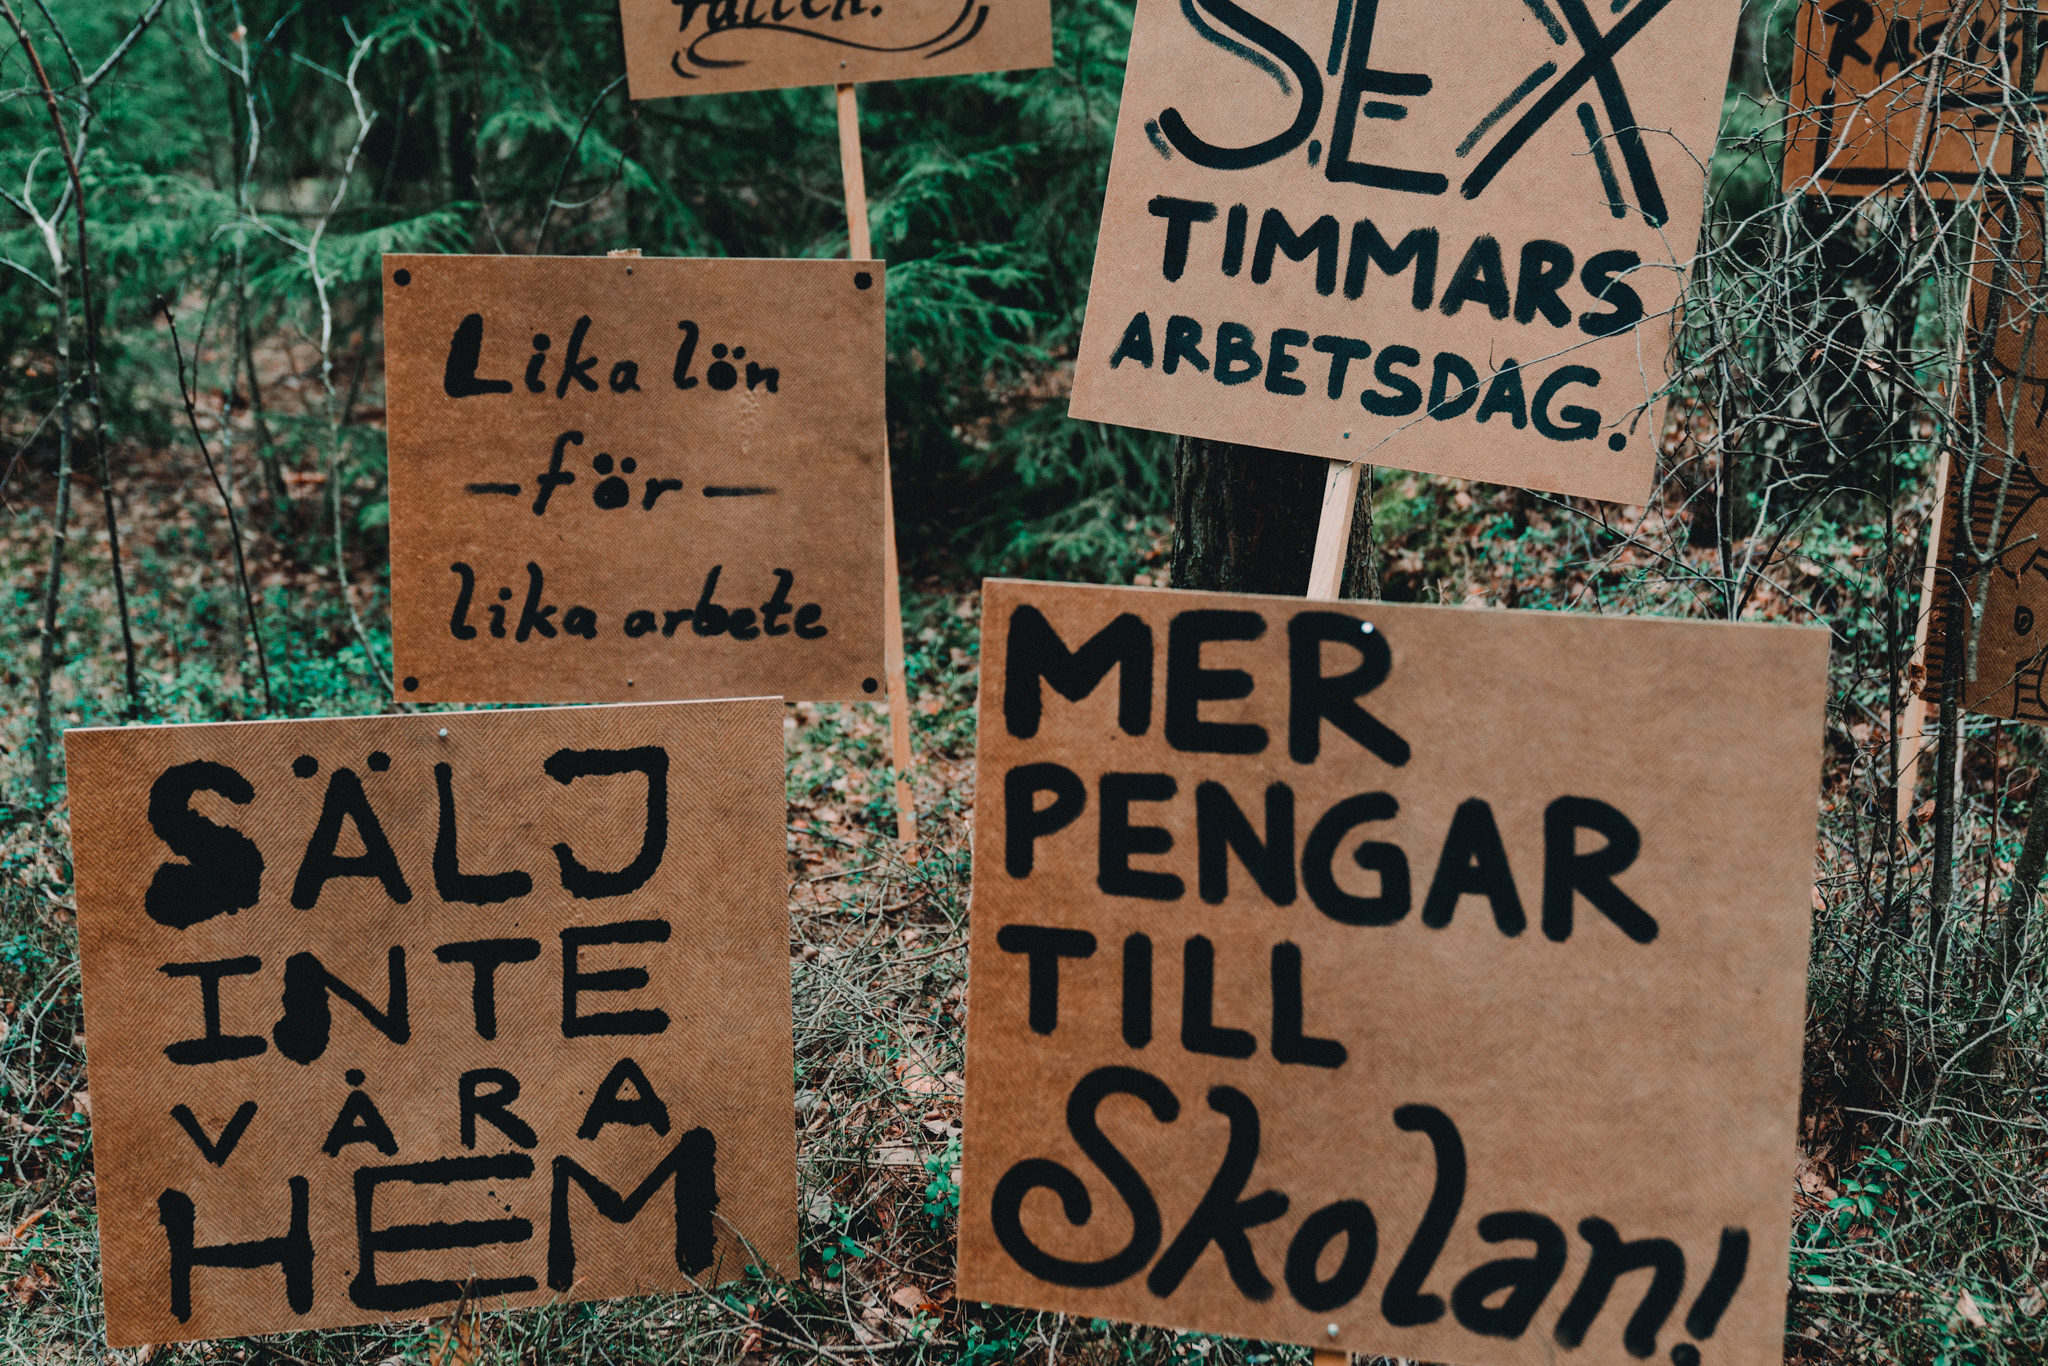 SEX
TIMMARS
ARBETSDAG.
Lika lön
— för —
lika arbete
SÄLJ
INTE
VÅRA
HEM
MER
PENGAR
TILL
Skolan!